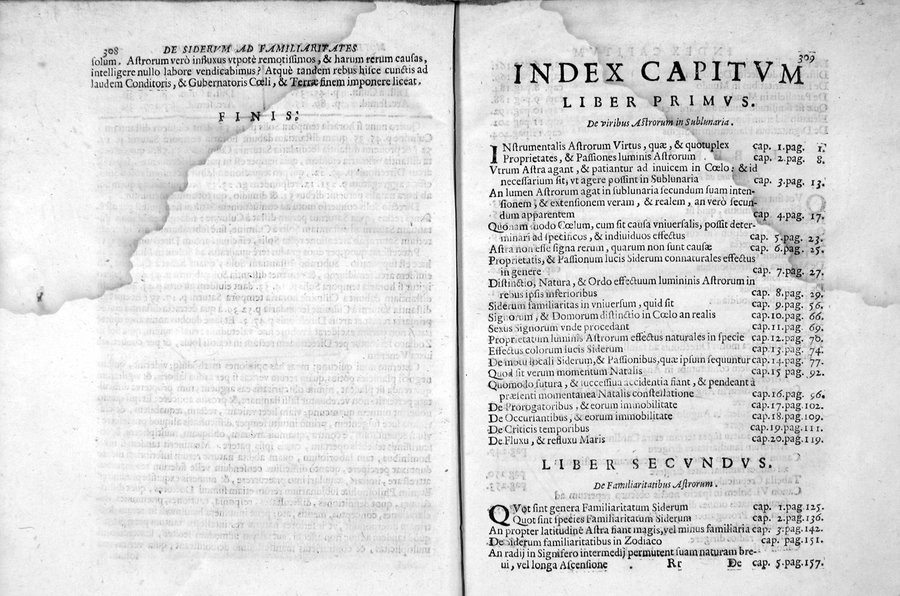 308 DE SIDERVM AD FAMILIARITATES
solum. Astrorum verò influxus vtpotè remotissimos, & harum rerum causas,
intelligere nullo labore vendicabimus? Atquè tandem rebus hisce cunctis ad
laudem Conditoris, & Gubernatoris Cœli, & Terræ finem imponere liceat.
FINIS.
309
INDEX CAPITVM
LIBER PRIMVS.
De viribus Astrorum in Sublunaria.
INstrumentalis Astrorum Virtus, quæ, & quotuplex cap. 1.pag. 1.
Proprietates, & Passiones luminis Astrorum cap. 2.pag. 8.
Vtrum Astra agant, & patiantur ad inuicem in Cœlo: & id
necessarium sit, vt agere possint in Sublunaria cap. 3.pag. 13.
An lumen Astrorum agat in sublunaria secundum suam inten-
sionem, & extensionem veram, & realem, an verò secun-
dum apparentem cap. 4.pag. 17.
Quonam modo Cœlum, cum sit causa vniuersalis, possit deter-
minari ad specificos, & indiuiduos effectus cap. 5.pag. 23.
Astra non esse signa rerum, quarum non sunt causæ cap. 6.pag. 25.
Proprietatis, & Passionum lucis Siderum connaturales effectus
in genere cap. 7.pag. 27.
Distinctio, Natura, & Ordo effectuum lumininis Astrorum in
rebus ipsis inferioribus cap. 8.pag. 29.
Siderum familiaritas in vniuersum, quid sit cap. 9.pag. 56.
Signorum, & Domorum distinctio in Cœlo an realis cap.10.pag. 66.
Sexus Signorum vnde procedant cap.11.pag. 69.
Proprietatum luminis Astrorum effectus naturales in specie cap.12.pag. 70.
Effectus colorum lucis Siderum cap.13.pag. 74.
De motu locali Siderum,& Passionibus,quæ ipsum sequuntur cap.14.pag. 77.
Quod sit verum momentum Natalis cap.15 pag. 92.
Quomodo futura, & successiua accidentia fiant, & pendeant à
præsenti momentanea Natalis constellatione cap.16.pag. 96.
De Prorogatoribus, & eorum immobilitate cap.17.pag.102.
De Occursantibus, & eorum immobilitate cap.18.pag.109.
De Criticis temporibus cap.19.pag.111.
De Fluxu, & refluxu Maris cap.20.pag.119.
LIBER SECVNDVS.
De Familiaritatibus Astrorum.
QVot sint genera Familiaritatum Siderum cap. 1.pag 125.
Quot sint species Familiaritatum Siderum cap. 2.pag.136.
An propter latitudinē Astra fiant magis,vel minus familiaria cap. 3.pag.142.
De siderum familiaritatibus in Zodiaco cap. 4.pag.151.
An radij in Signifero intermedij permutent suam naturam bre-
ui, vel longa Ascensione . Rr De cap. 5.pag.157.